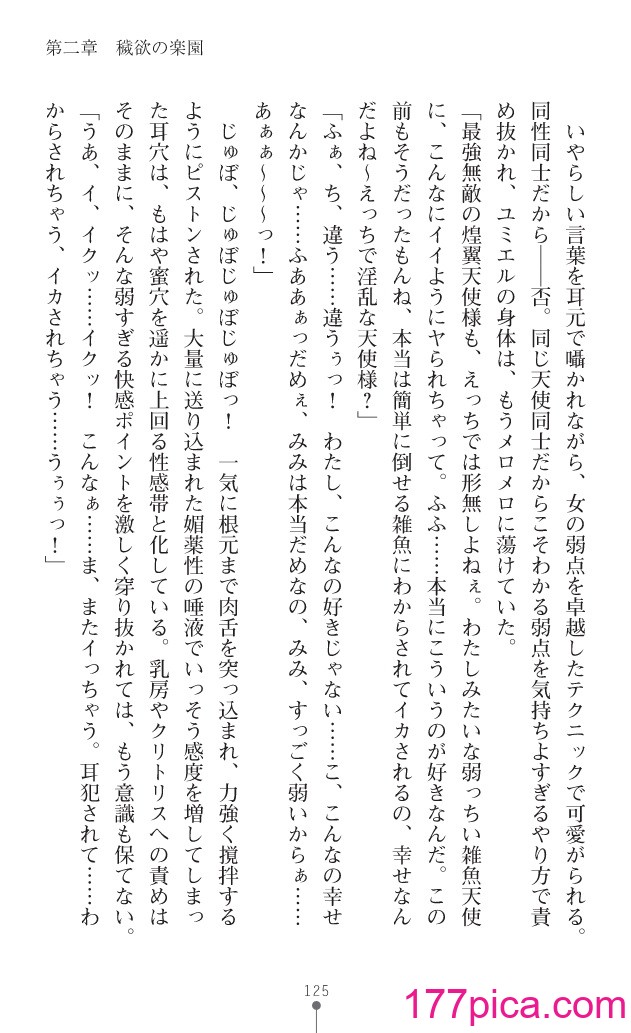 第二章　穢欲の楽園
　いやらしい言葉を耳元で囁かれながら、女の弱点を卓越したテクニックで可愛がられる。
同性同士だから――否。同じ天使同士だからこそわかる弱点を気持ちよすぎるやり方で責
め抜かれ、ユミエルの身体は、もうメロメロに蕩けていた。
「最強無敵の煌翼天使様も、えっちでは形無しよねぇ。わたしみたいな弱っちい雑魚天使
に、こんなにイイようにヤられちゃって。ふふ……本当にこういうのが好きなんだ。この
前もそうだったもんね、本当は簡単に倒せる雑魚にわからされてイカされるの、幸せなん
だよね～えっちで淫乱な天使様？」
「ふぁ、ち、違う……違うぅっ！　わたし、こんなの好きじゃない……こ、こんなの幸せ
なんかじゃ……ふああぁっだめぇ、みみは本当だめなの、みみ、すっごく弱いからぁ……
あぁぁ～～～っ！」
　じゅぼ、じゅぼじゅぼじゅぼっ！　一気に根元まで肉舌を突っ込まれ、力強く撹拌する
ようにピストンされた。大量に送り込まれた媚薬性の唾液でいっそう感度を増してしまっ
た耳穴は、もはや蜜穴を遥かに上回る性感帯と化している。乳房やクリトリスへの責めは
そのままに、そんな弱すぎる快感ポイントを激しく穿り抜かれては、もう意識も保てない。
「うあ、イ、イクッ……イクッ！　こんなぁ……ま、またイっちゃう。耳犯されて……わ
からされちゃう、イカされちゃう……うぅぅっ！」
125
177pica.com